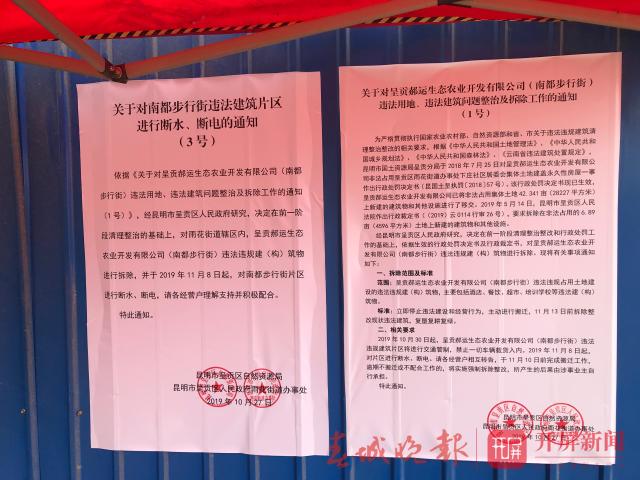 关于对南都步行街违法建筑片区
进行断水、断电的通知
（3号）
依据《关于对呈贡郝运生态农业开发有限公司（南都
步行街）违法用地、违法建筑问题整治及拆除工作的通知
（1号）》，经昆明市呈贡区人民政府研究，决定在前一阶
段清理整治的基础上，对雨花街道辖区内，呈贡郝运生态
农业开发有限公司（南都步行街）违法违规建（构）筑物
进行拆除，并于2019年11月8日起，对南都步行街片区
进行断水、断电，请各经营户理解支持并积极配合。
特此通知。
昆明市呈贡区自然资源局
昆明市呈贡区人民政府雨花街道办事处
2019年10月27日
关于对呈贡郝运生态农业开发有限公司（南都步行街）
违法用地、违法建筑问题整治及拆除工作的通知
（1号）
为严格贯彻执行国家农业农村部、自然资源部和省、市关于违法违规建筑清
理整治整改的相关要求，根据《中华人民共和国土地管理法》、《中华人民共和
国城乡规划法》、《中华人民共和国森林法》、《云南省违法建筑处置规定》，
昆明市国土资源局呈贡分局于2018年7月25日对呈贡郝运生态农业开发有限公司
司非法占用呈贡区雨花街道办事处下庄社区居委会集体土地建盖永久性房屋一
事作出行政处罚决定书（昆国土呈执罚〔2018〕57号），该行政处罚决定书现已生效，
呈贡郝运生态农业开发有限公司已将非法占用集体土地42.341亩（28227平方米）
土地上新建的建筑物和其他设施进行了移交。2019年5月14日，昆明市呈贡区人民
法院作出行政裁定书（（2019）云0114行审26号），要求拆除在非法占用的6.89
亩（4596平方米）土地上新建的建筑物和其他设施。
经昆明市呈贡区人民政府研究，决定在前一阶段清理整治整改和行政处罚工
作的基础上，依据生效的行政处罚决定书及行政裁定书，对呈贡郝运生态农业开
发有限公司（南都步行街）违法违规建（构）筑物进行拆除。现将有关事项通知
如下：
一、拆除范围及标准
范围：呈贡郝运生态农业开发有限公司（南都步行街）违法违规占用土地建
设的违法违规建（构）筑物，主要包括酒店、餐饮、超市、培训学校等违法建（构）
筑物。
标准：立即停止违法建设和经营行为，主动进行搬迁，11月13日前拆除整
改现状违法建筑，复垦复耕复绿。
二、相关要求
2019年10月30日起，呈贡郝运生态农业开发有限公司（南都步行街）违法
违规建筑片区将进行交通管制，禁止一切车辆载货入内。2019年11月8日起，
对片区进行断水、断电。请各经营户相互转告，于11月10日前完成搬迁工作，
逾期不搬迁或不配合工作的，将实施强制拆除整改，所产生的后果由涉事业主自
行承担。
特此通知。
昆明市呈贡区自然资源局
昆明市呈贡区人民政府雨花街道办事处
2019年10月27日
春城晚报
开屏
开屏新闻